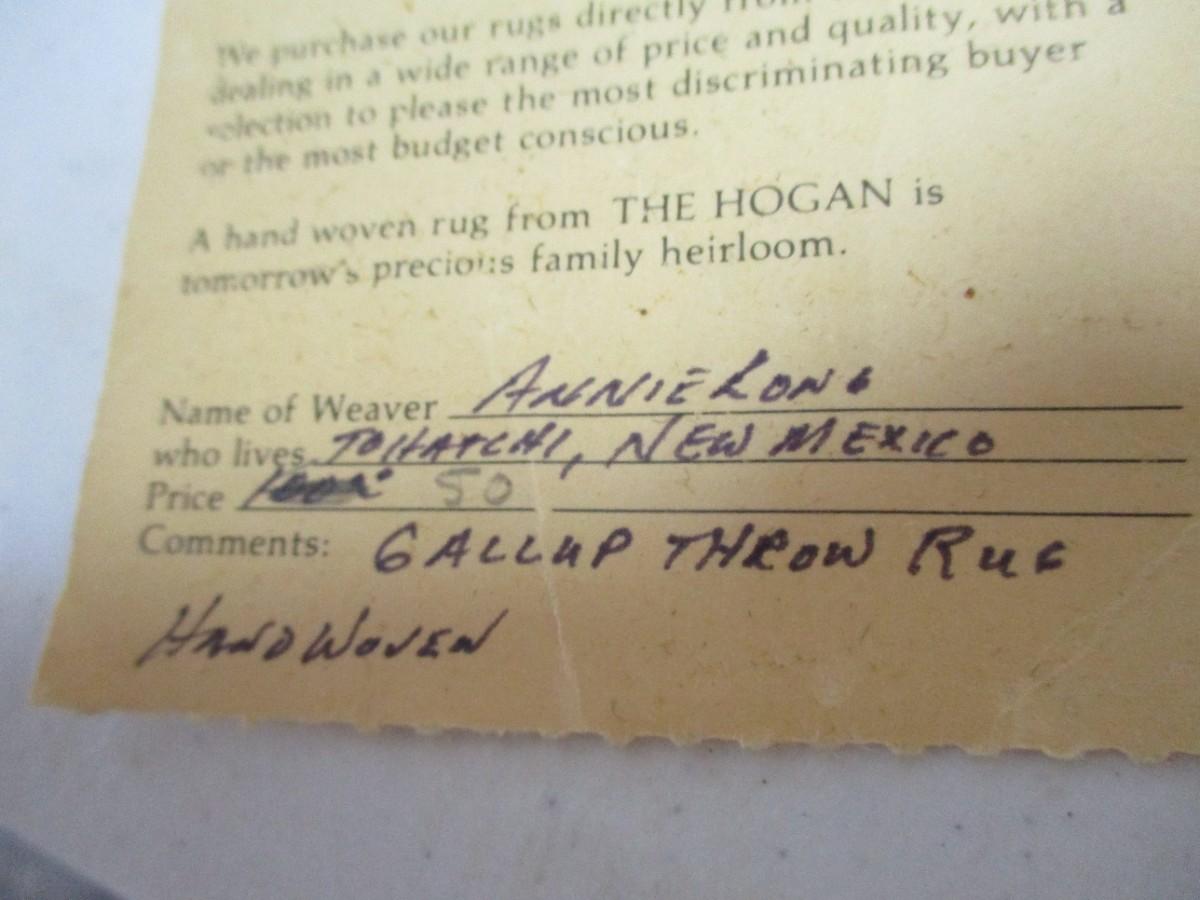 We purchase our rugs directly from
dealing in a wide range of price and quality, with a
selection to please the most discriminating buyer
or the most budget conscious.
A hand woven rug from THE HOGAN is
tomorrow's precious family heirloom.
Name of Weaver ANNIE LONG
who lives TOHATCHI, NEW MEXICO
Price 50
Comments: GALLUP THROW RUG
HANDWOVEN